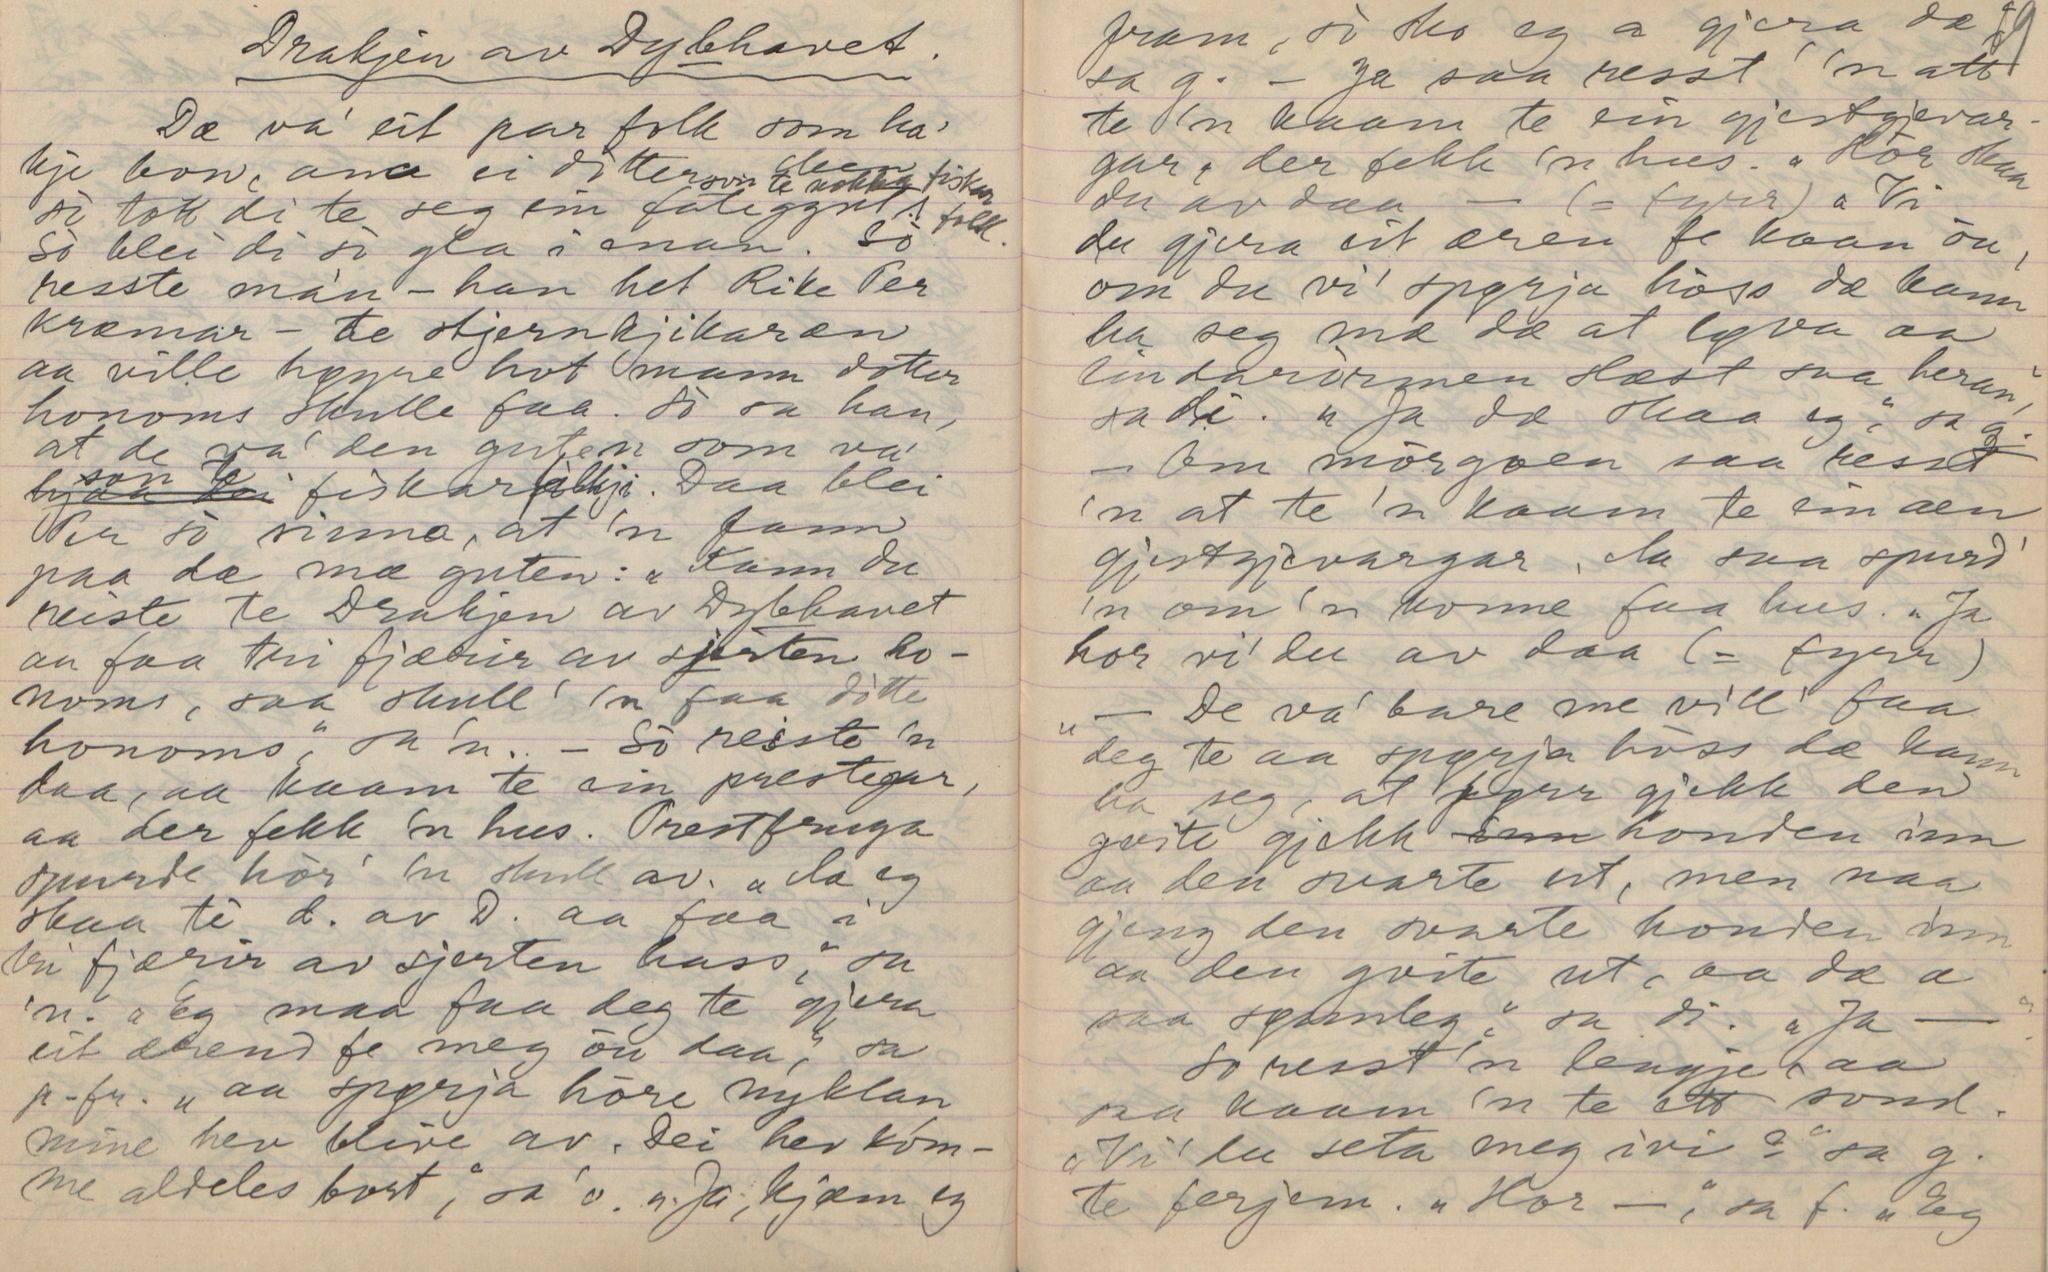 Drakjen av Dybhavet.
Dæ va' eit par folk som ha'
kje bon, ana ei dòtter
son te fiskarfolk.
sò tokk di te seg ein fatiggut.
Sò blei di sò gla i enan. Sò
resste mán – han het Rike Per
Kræmar – te stjernkjikaren
aa ville høyre hot mann dotter
honoms skulle faa. Sò sa han,
at de va' den guten som va'
son te fiskarfolkji. Daa blei
Per sò sinna, at 'n fann
paa dæ mæ guten: „Kann du
reiste te Drakjen av Dybhavet
aa faa tri fjærir av sjerten ho-
noms, saa skull' 'n faa dòtte
honoms," sa 'n. – Sò reiste 'n
daa, aa kaam te ein prestegar,
aa der fekk 'n hus. Prestfruga
spurde hòr' 'n skull av. „Ja eg
skaa te D. av D. aa faa i
tri fjærir av sjerten hass," sa
'n. „Eg maa faa deg te gjera
eit ærend fe meg òu daa," sa
p-fr. „aa spørja hòre nyklan
mine hev blive av. Dei hev kòm-
me aldeles bort," sa 'o. „Ja, kjæm eg
19
fram, sò sko eg a gjera dæ"
sa g. – Ja saa resst' 'n att
te 'n kaam te ein gjestgjevar-
gar, der fekk 'n hus. „Hòr skaa
du av daa – (= fyrr) „Vi
du gjera eit æren fe kaan òu,
om du vi' spørja hòss dæ kann
ha seg mæ dæ at løva aa
lindaròrmen slæst saa heran,"
sa di. „Ja dæ skaa eg," sa g.
– Om mòrgoen saa resst
'n at te 'n kaam te ein aen
gjestgjevargar, da saa spurd'
'n om 'n konne faa hus. „Ja
hor vi' du av daa (= fyrr)
„– De va' bare me vill' faa
deg te aa spørja hòss dæ kann
ha seg, at fyrr gjekk den
gvite gjekk honden inn
aa den svarte ut, men naa
gjeng den svarte honden inn
aa den gvite ut, aa dæ æ
saa spunleg," sa di. „Ja –"
So resst 'n lengje, aa
saa kaam 'n te ett sond.
„Vi' du seta meg ivi?" sa g.
te ferjem. „Hor –," sa f. „Eg